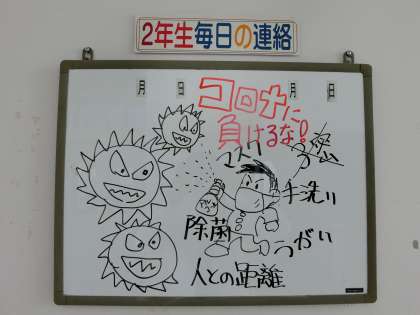 2年生毎日の連絡
月 日
月 日
コロナに
負けるな!
マスク
3密
手洗い
除菌
うがい
人との距離